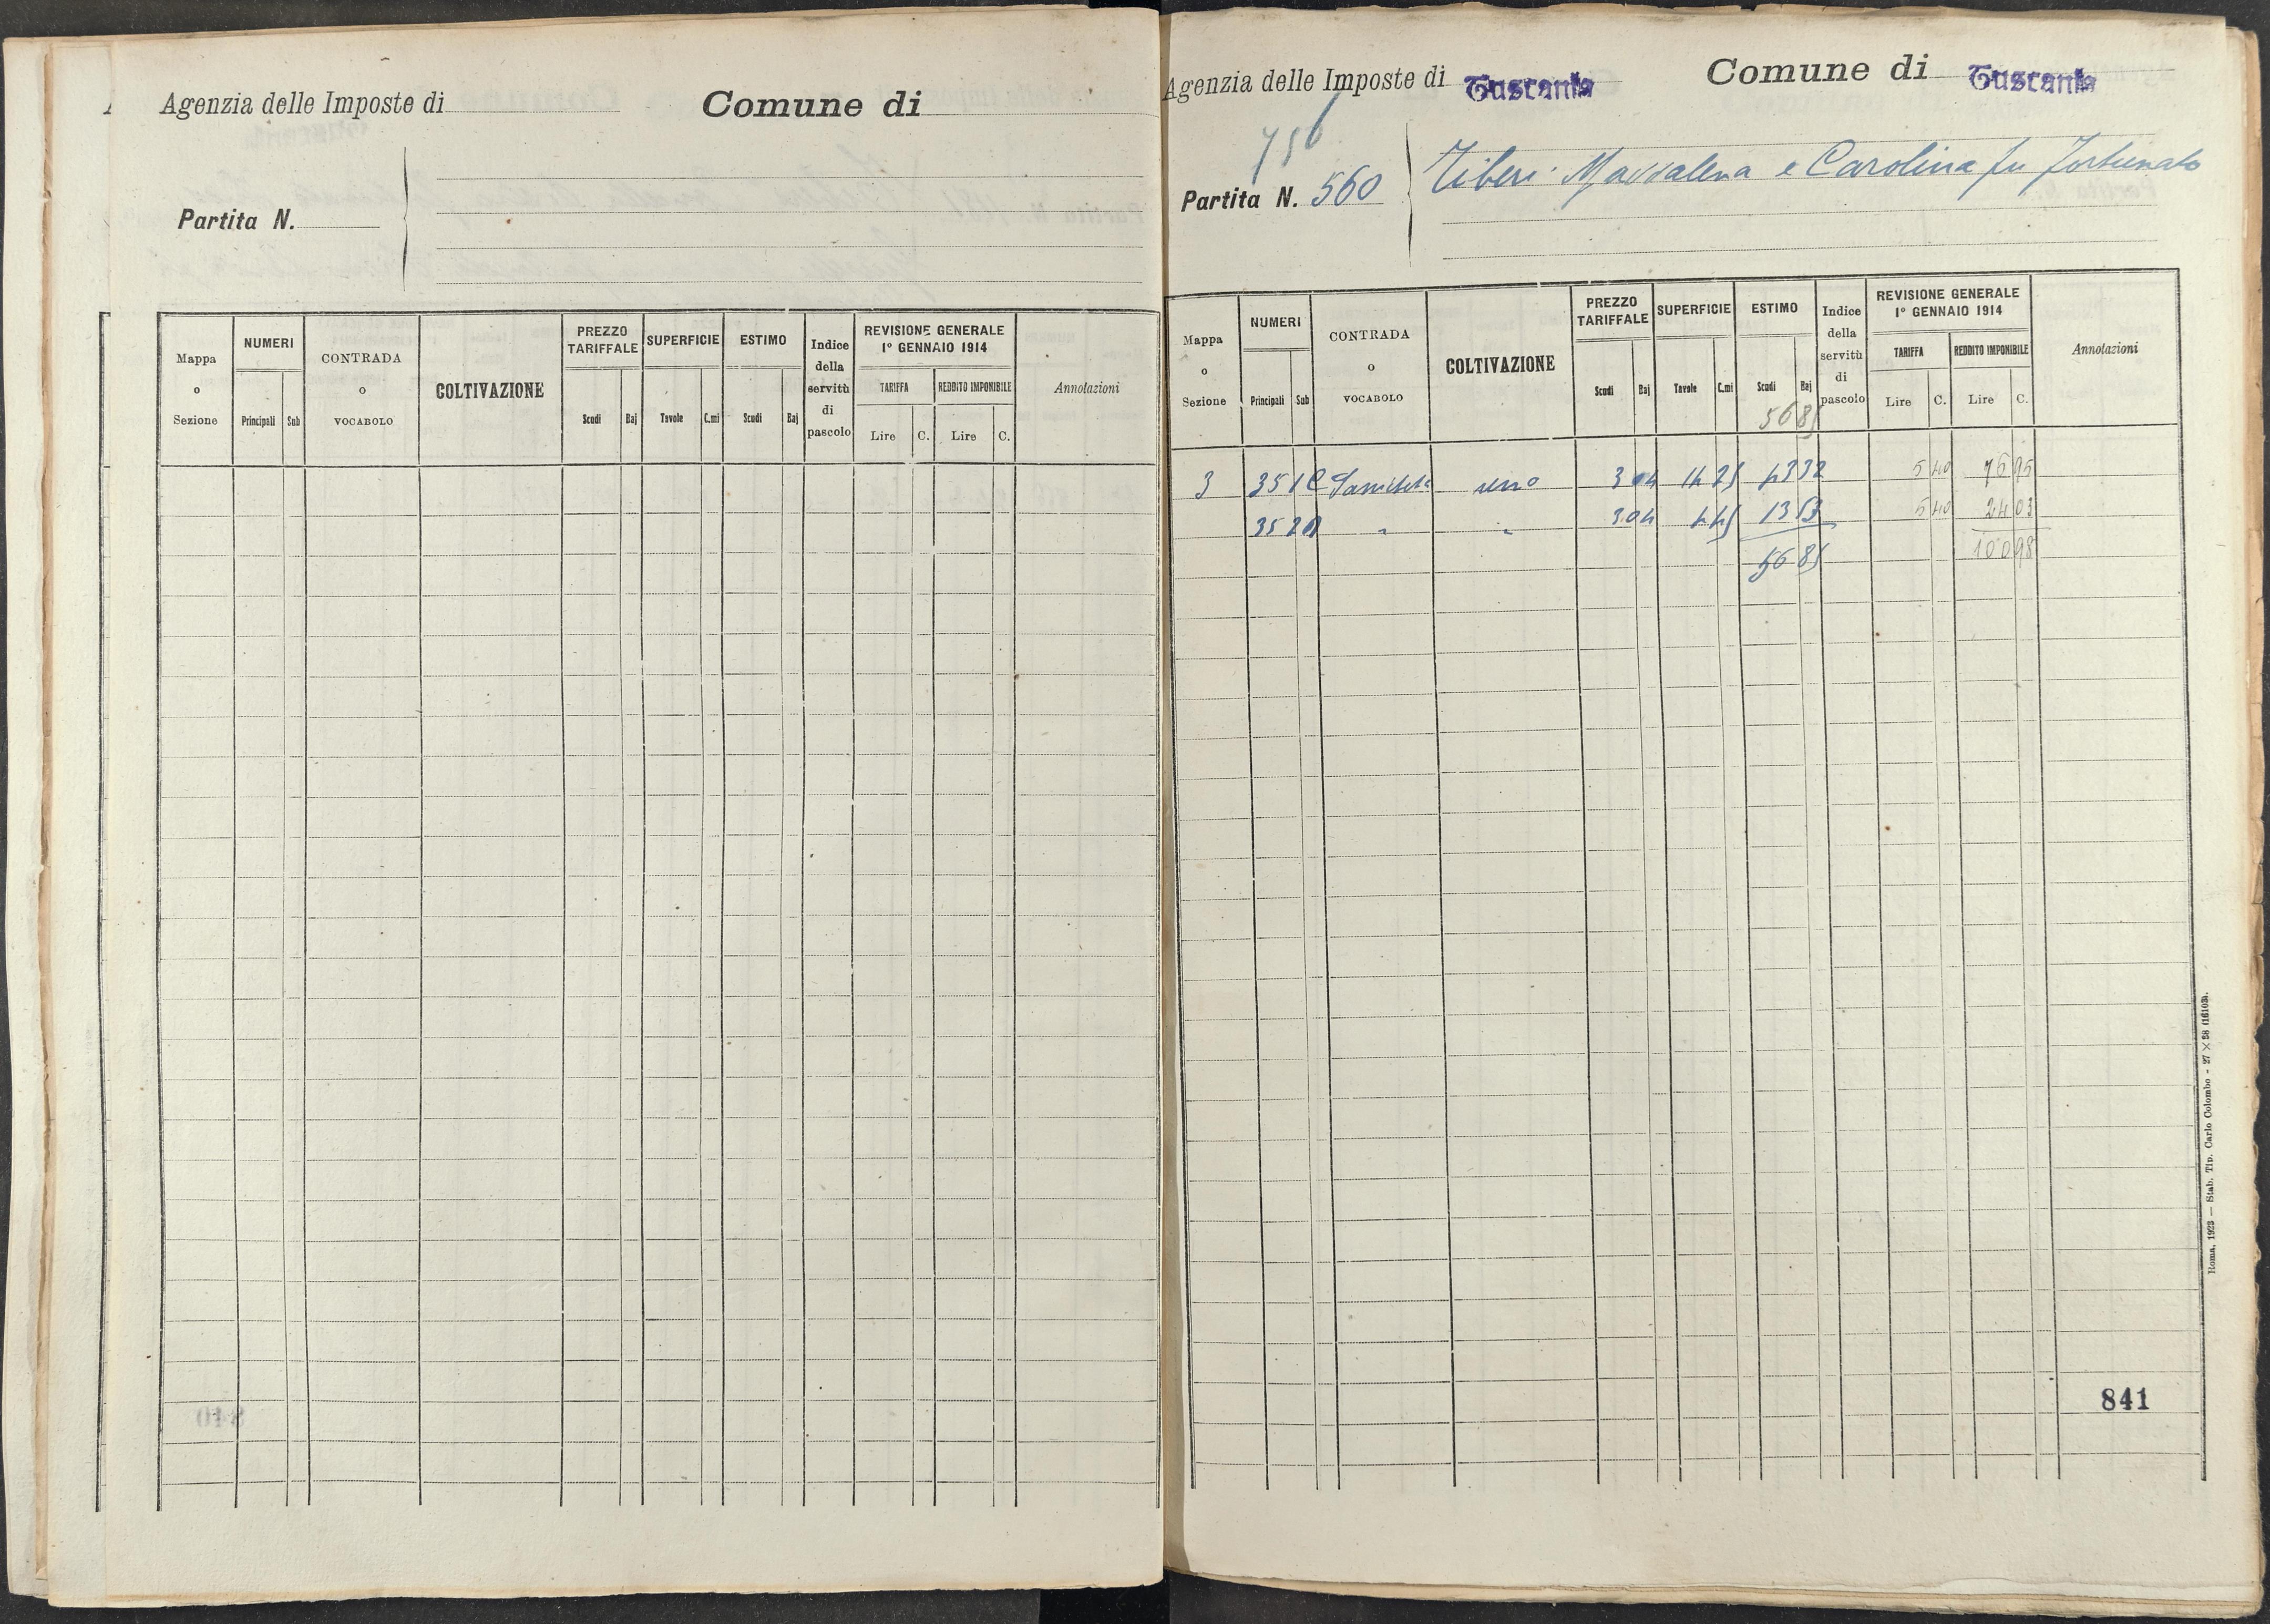 Agenzia delle Imposte di
Comune di
Partita N.
Mappa o Sezione
NUMERI
Principali Sub
CONTRADA o VOCABOLO
COLTIVAZIONE
PREZZO TARIFFALE
Scudi Baj
SUPERFICIE
Tavole C.mi
ESTIMO
Scudi Baj
Indice della servitù di pascolo
REVISIONE GENERALE
1° GENNAIO 1914
TARIFFA
Lire C.
REDDITO IMPONIBILE
Lire C.
Annotazioni
Agenzia delle Imposte di Tuscania
Comune di Tuscania
Partita N. 560
Tiberi Maddalena e Carolina fu Fortunato
Mappa o Sezione
NUMERI
Principali Sub
CONTRADA o VOCABOLO
COLTIVAZIONE
PREZZO TARIFFALE
Scudi Baj
SUPERFICIE
Tavole C.mi
ESTIMO
Scudi Baj
56 85
Indice della servitù di pascolo
REVISIONE GENERALE
1° GENNAIO 1914
TARIFFA
Lire C.
REDDITO IMPONIBILE
Lire C.
Annotazioni
3 351 3 04 14 25 43 32 5 40 76 95
352 " " 3 04 4 45 13 53 5 40 24 03
56 85 100 98
841
Roma, 1923 — Stab. Tip. Carlo Colombo - 27 × 38 (16103).